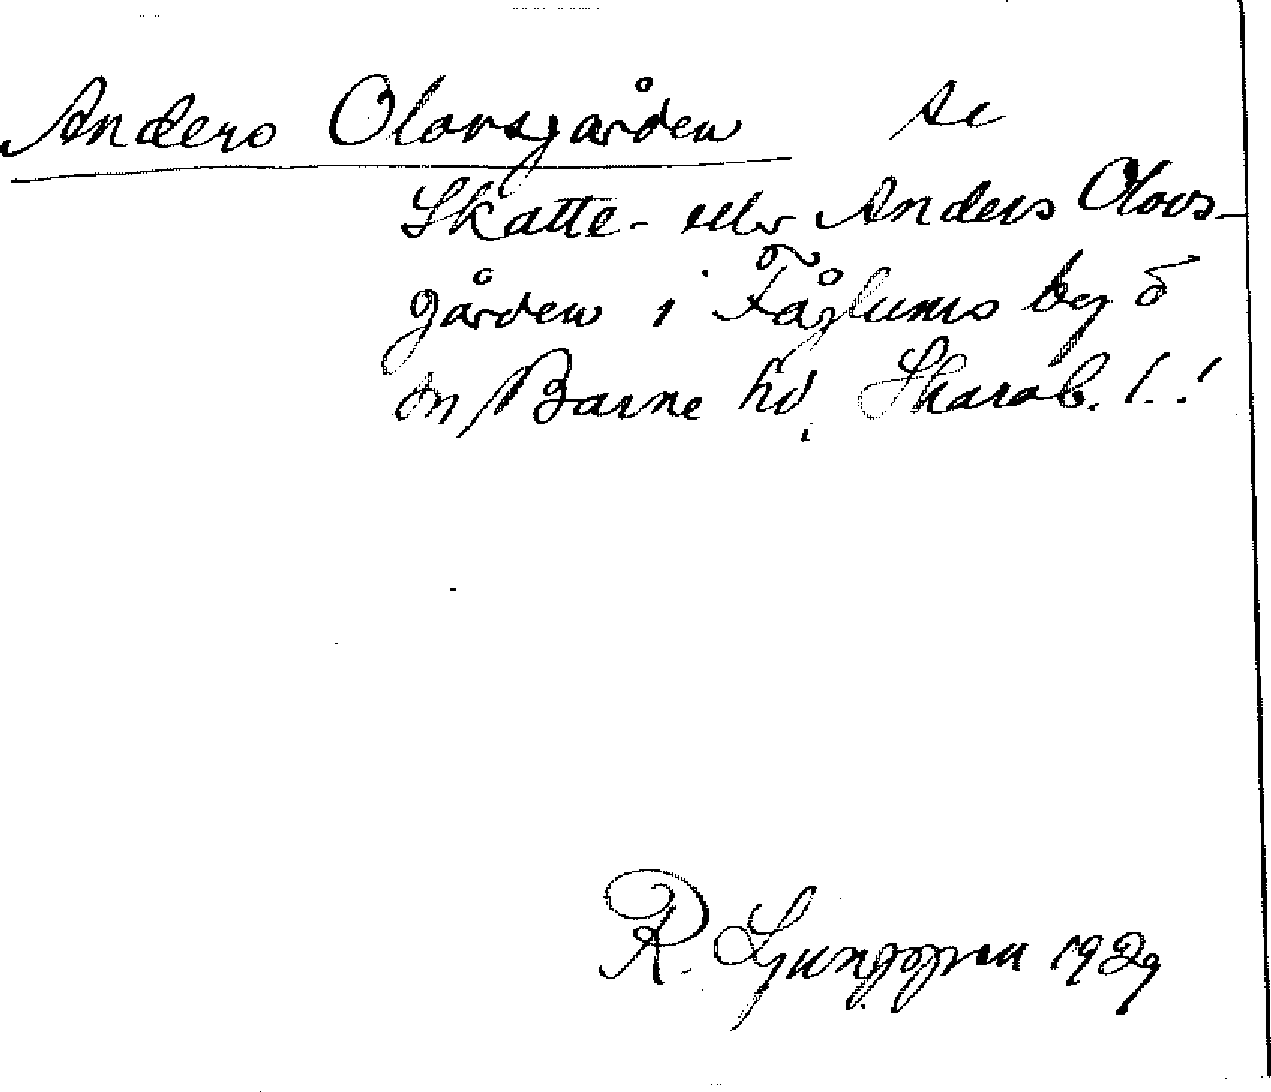 Anders Olovsgården se
Skatte- eller Anders Olovs-
gården i Fåglums by o
sn Barne hd, Skarab. l.!
R. Ljunggren 1929